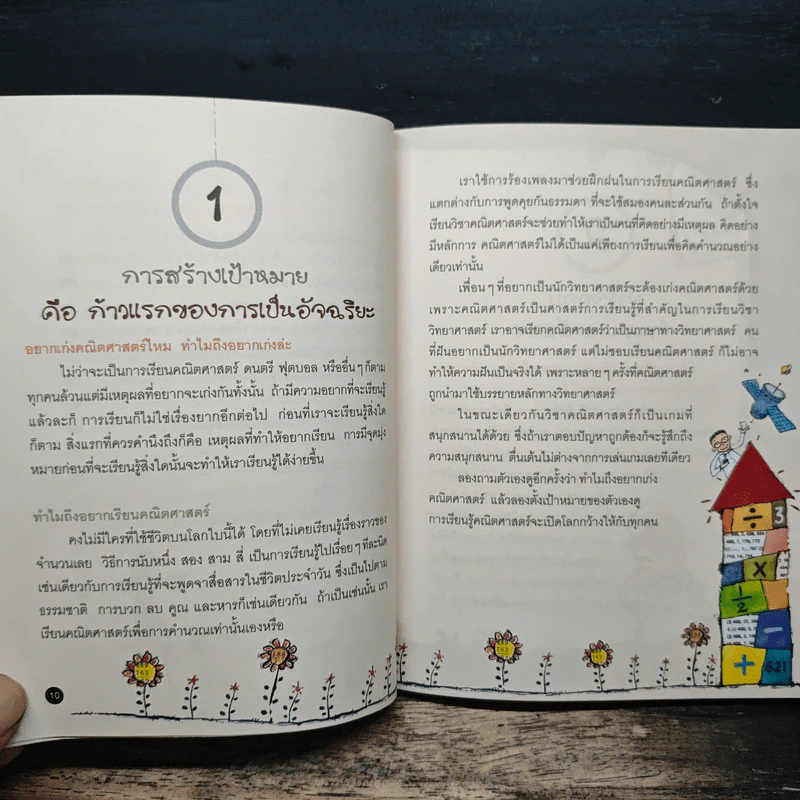 1
การสร้างเป้าหมาย
คือ ก้าวแรกของการเป็นอัจฉริยะ
อยากเก่งคณิตศาสตร์ไหม ทำไมถึงอยากเก่งล่ะ
ไม่ว่าจะเป็นการเรียนคณิตศาสตร์ ดนตรี ฟุตบอล หรืออื่นๆ ก็ตาม
ทุกคนล้วนแต่มีเหตุผลที่อยากจะเก่งกันทั้งนั้น ถ้ามีความอยากที่จะเรียนรู้
แล้วละก็ การเรียนก็ไม่ใช่เรื่องยากอีกต่อไป ก่อนที่เราจะเรียนรู้สิ่งใด
ก็ตาม สิ่งแรกที่ควรคำนึงถึงก็คือ เหตุผลที่ทำให้อยากเรียน การมีจุดมุ่ง
หมายก่อนที่จะเรียนรู้สิ่งใดนั้นจะทำให้เราเรียนรู้ได้ง่ายขึ้น
ทำไมถึงอยากเรียนคณิตศาสตร์
คงไม่มีใครที่ใช้ชีวิตบนโลกใบนี้ได้ โดยที่ไม่เคยเรียนรู้เรื่องราวของ
จำนวนเลย วิธีการนับหนึ่ง สอง สาม สี่ เป็นการเรียนรู้ไปเรื่อยๆ ทีละนิด
เช่นเดียวกับการเรียนรู้ที่จะพูดจาสื่อสารในชีวิตประจำวัน ซึ่งเป็นไปตาม
ธรรมชาติ การบวก ลบ คูณ และหารก็เช่นเดียวกัน ถ้าเป็นเช่นนั้น เรา
เรียนคณิตศาสตร์เพื่อการคำนวณเท่านั้นเองหรือ
10
เราใช้การร้องเพลงมาช่วยฝึกฝนในการเรียนคณิตศาสตร์ ซึ่ง
แตกต่างกับการพูดคุยกันธรรมดา ที่จะใช้สมองคนละส่วนกัน ถ้าตั้งใจ
เรียนวิชาคณิตศาสตร์จะช่วยทำให้เราเป็นคนที่คิดอย่างมีเหตุผล คิดอย่าง
มีหลักการ คณิตศาสตร์ไม่ได้เป็นแค่เพียงการเรียนเพื่อคิดคำนวณอย่าง
เดียวเท่านั้น
เพื่อนๆ ที่อยากเป็นนักวิทยาศาสตร์จะต้องเก่งคณิตศาสตร์ด้วย
เพราะคณิตศาสตร์เป็นศาสตร์การเรียนรู้ที่สำคัญในการเรียนวิชา
วิทยาศาสตร์ เราอาจเรียกคณิตศาสตร์ว่าเป็นภาษาทางวิทยาศาสตร์ คน
ที่ฝันอยากเป็นนักวิทยาศาสตร์ แต่ไม่ชอบเรียนคณิตศาสตร์ ก็ไม่อาจ
ทำให้ความฝันเป็นจริงได้ เพราะหลายๆ ครั้งที่คณิตศาสตร์
ถูกนำมาใช้บรรยายหลักทางวิทยาศาสตร์
ในขณะเดียวกันวิชาคณิตศาสตร์ก็เป็นเกมที่
สนุกสนานได้ด้วย ซึ่งถ้าเราตอบปัญหาถูกต้องก็จะรู้สึกถึง
ความสนุกสนาน ตื่นเต้นไม่ต่างจากการเล่นเกมเลยทีเดียว
ลองถามตัวเองดูอีกครั้งว่า ทำไมถึงอยากเก่ง
คณิตศาสตร์ แล้วลองตั้งเป้าหมายของตัวเองดู
การเรียนรู้คณิตศาสตร์จะเปิดโลกกว้างให้กับทุกคน
÷ 3
×
1/2
−
+ 621